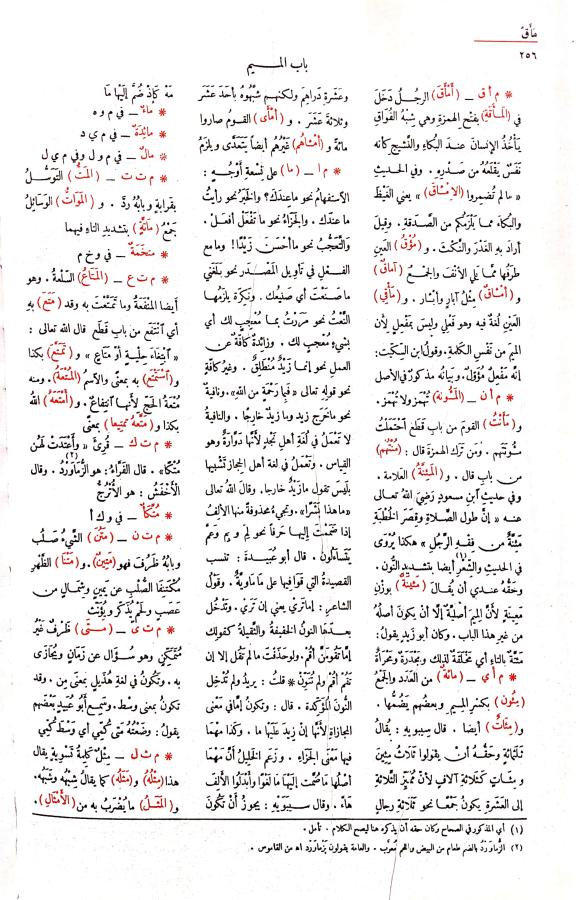 مَأَقَ
٢٥٦
باب المـــيم
* م أ ق ــ (أَمْأَقَ) الرجُلُ دَخَلَ
في (المَأْقَةِ) بفتح الهمزة وهي شِبْهُ الفُوَاقِ
يَأخُذُ الإنسانَ عند البُكاء والنَّشيج كأنه
نَفَسٌ يَقْلَعُه من صَدره . وفي الحديث
« ما لم تُضمِروا (الإمْآقَ) » يعني الغَيْظَ
والبُكاءَ مما يَلْزَمُكم من الصَّدقة . وقيل
أراد به الغَدْرَ والنُّكْثَ . و (مُؤْقُ) العَين
طَرَفُها ممَّا يَلِي الأنْفَ والجمعُ (آماقٌ)
و (أَمْآقٌ) مِثْلُ آبارٍ وأبْآرٍ . و (مَأْقِي)
العَين لغة فيه وهو فَعْلِي وليس بمَفْعِلٍ لأن
الميم من نَفْسِ الكلمة . وقولُ ابن السِكّيت:
إنَّه مَفْعِلٌ مُؤَوَّلٌ. وبَيانُه مذكورٌ في الأصل
* م أ ن ــ (المَئُونَةُ) تُهْمَزُ ولا تُهْمَز.
و (مَأَنْتُ) القومَ من باب قَطَع احْتَمَلْتُ
مَئُونَتَهم . ومَن تَرَك الهمزةَ قال : (مُنْتُهم)
من باب قال . و (المَئِنَّةُ) العلامة .
وفي حديثِ ابن مسعودٍ رَضِيَ الله تعالى
عنه « إن طولَ الصلاةِ وقِصَرَ الخُطْبَةِ
مَئِنَّةٌ من فِقْهِ الرجُلِ » هكذا يُرْوَى
في الحديث والشِّعرِ أيضا بتشديد النُّون .
وحَقُّه عندي أن يُقَالَ (مَئِينَةٌ) بوزْن
مَعِينَةٍ لأنَّ الميمَ أصليَّةٌ إلَّا أنْ يكونَ أصلُه
من غير هذا الباب . وكان أبو زيد يقول:
مَئِتَّةٌ بالتاء أي مَخْلَقَةٌ لذلك ومَجْدَرَةٌ ومَحْرَاةٌ
* م أ ي ــ (مائةٌ) من العَدَد والجمعُ
(مِئون) بكَسْر الميم وبعضُهم يَضُمُّها .
و (مِئَاتٌ) أيضا . قال سيبويهِ : يُقالُ
ثَلَثُمِائَةٍ وحَقُّه أنْ يقولوا ثَلاثُ مِئِينَ
ومِئَاتٍ كثَلاثَةِ آلافٍ لأنَّ مُمَيِّزَ الثَّلاثَةِ
إلى العَشَرة يكونُ جَمْعًا نحوُ ثَلاثةِ رجالٍ
وعَشَرةِ دَراهِمَ ولكنهم شَبَّهُوهُ بأحَدَ عَشَرَ
وثلاثَةَ عَشَرَ . و (أَمْأَى) القومُ صاروا
مائةً و (أمْآهُم) غَيْرُهم أيضا يَتَعَدَّى ويَلزَمُ
* م ا ــ (ما) على تِسْعةِ أوْجُهٍ :
الاستفهامُ نحوُ ماعِندَك؟ والخَبَرُ نحوُ رأيْتُ
ما عندَك . والجَزَاءُ نحو ما تَفْعَلْ أفعلْ .
والتَّعجُّبُ نحوُ ما أحْسَنَ زَيْدًا! وما مع
الفعل في تأويل المَصْدَر نحو بَلَغَني
ما صَنَعْتَ أي صَنِيعُك . ونَكِرةٌ يلزَمُها
النَّعْتُ نحوُ مَرَرْتُ بما مُعجِبٍ لك أي
بشيءٍ مُعجِبٍ لك . وزائدةٌ كافَّةٌ عن
العمل نحو إنما زيدٌ مُنْطَلِقٌ . وغيرُ كافَّةٍ
نحو قوله تعالى « فَبِمَا رَحْمَةٍ من اللهِ» . ونافيةٌ
نحو ما خَرَج زيد وما زيدٌ خارجًا . والنافيةُ
لا تَعمَلُ في لُغةِ أهلِ نَجْد لأنَّها دَوَّارَةٌ وهو
القياس . وتَعْمَلُ في لغة أهل الحِجاز تَشْبيها
بلَيْسَ تقول مازيدٌ خارجا. وقال الله تعالى
«ما هذا بَشَرًا». وتجيءُ محذوفةً منها الألفُ
إذا ضَمَمْتَ إليها حَرفًا نحو لِمَ وبِمَ وعَمَّ
يَتَساءَلُون . قال أبو عُبيدة : تنسب
القصيدةُ التي قوافيها على مَا مَاوِيَّةٌ. وقولُ
الشاعر : إمّاتَرَيْ يعني إن تَرَي . وتَدْخُل
بعدَها النُّونُ الخفيفةُ والثقيلةُ كقولك
إمَّا تَقُومَنَّ أَقُمْ. ولو حَذَفْتَ ما لم تَقُل إلا إن
تَقُمْ أَقُمْ ولم تُنَوِّنْ * قلت : يريد ولم تُدْخِل
النُّونَ المؤكِّدة . قال : وتكونُ إمَّا في معنى
المجازاة لأنَّها إن زِيدَ عليها ما . وكذا مهما
فيها معنى الجزاء . وزعم الخليلُ أنَّ مهما
أصلُها ما ضُمَّت إليها ما لَغْوًا وأبْدَلُوا الألفَ
هَاءً . وقال سيبَوَيهِ : يجوزُ أنْ تكونَ
مَهْ كإذْ ضُمَّ إليها مَا
* ماءٌ ــ في م و ه
* مائِدَةٌ ــ في م ي د
* مالٌ ــ في م و ل وفي م ي ل
* م ت ت ــ (المَتُّ) التَّوَسُّلُ
بقَرابةٍ وبابُه ردَّ . و (المَواتُّ) الوَسَائِلُ
جَمْعُ (ماتَّةٍ) بتشديد التاءِ فيهما
* مَتْخَمَةٌ ــ في وخ م
* م ت ع ــ (المَتَاعُ) السِّلْعَةُ . وهو
أيضا المَنْفَعَةُ وما تَمَتَّعْتَ به وقد (مَتَعَ) به
أي انْتَفَع من باب قَطَع قال الله تعالى :
« ابْتِغَاءَ حِلْيَةٍ أوْ مَتاعٍ » و (تَمَتَّعَ) بكذا
و (اسْتَمْتَعَ) به بمعنًى والاسمُ (المُتْعَةُ). ومنه
مُتْعَةُ الحجّ لأنها انتِفاعٌ . و (أمْتَعَهُ) اللهُ
بكذا و (مَتَّعَهُ تَمتيعا) بمعنًى
* م ت ك ــ قُرِئَ « وأَعْتَدَتْ لَهُنَّ
مُتْكًا» . قال الفَرَّاءُ: هو الزُّمَاوَرْدُ (٢) . وقال
الأخفش : هو الأُتْرُجُّ
* مُتَّكَأٌ ــ في وك أ
* م ت ن ــ (مَتُنَ) الشيءُ صَلُبَ
وبابُه ظَرُفَ فهو (مَتِينٌ). و (مَتْنَا) الظَّهْرِ
مُكْتَنِفَا الصُّلْبِ عن يَمين وشِمالٍ من
عَصَبٍ ولَحْمٍ يُذَكَّر ويُؤَنَّث
* م ت ى ــ (مَتَى) ظَرْفٌ غَيْرُ
مُتَمَكِّنٍ وهو سُؤال عن زَمانٍ ويُجازَى
به . وتكونُ في لغة هُذَيْل بمعنى مِن . وقد
تكونُ بمعنى وسَط. وسَمِعَ أبو عُبيد بعضَهم
يقول: وضَعْتُه مَتَى كُمِّي أي وَسْطَ كُمِّي
* م ث ل ــ مِثْلٌ كلمةُ تَسْوِيةٍ يقال
هذا (مِثْلُه) و (مَثَلُه) كما يقالُ شِبْهُه وشَبَهُه.
و (المَثَلُ) ما يُضْرَبُ به من (الأَمْثالِ).
(١) أي المذكور في الصحاح وكان حقه أن يذكره هنا ليصح الكلام . تأمل .
(٢) الزُّمَاوَرْدُ بالضم طعام من البيض واللحم مُعرَّب . والعامة يقولون بَزْمَاوَرْد اه من القاموس .